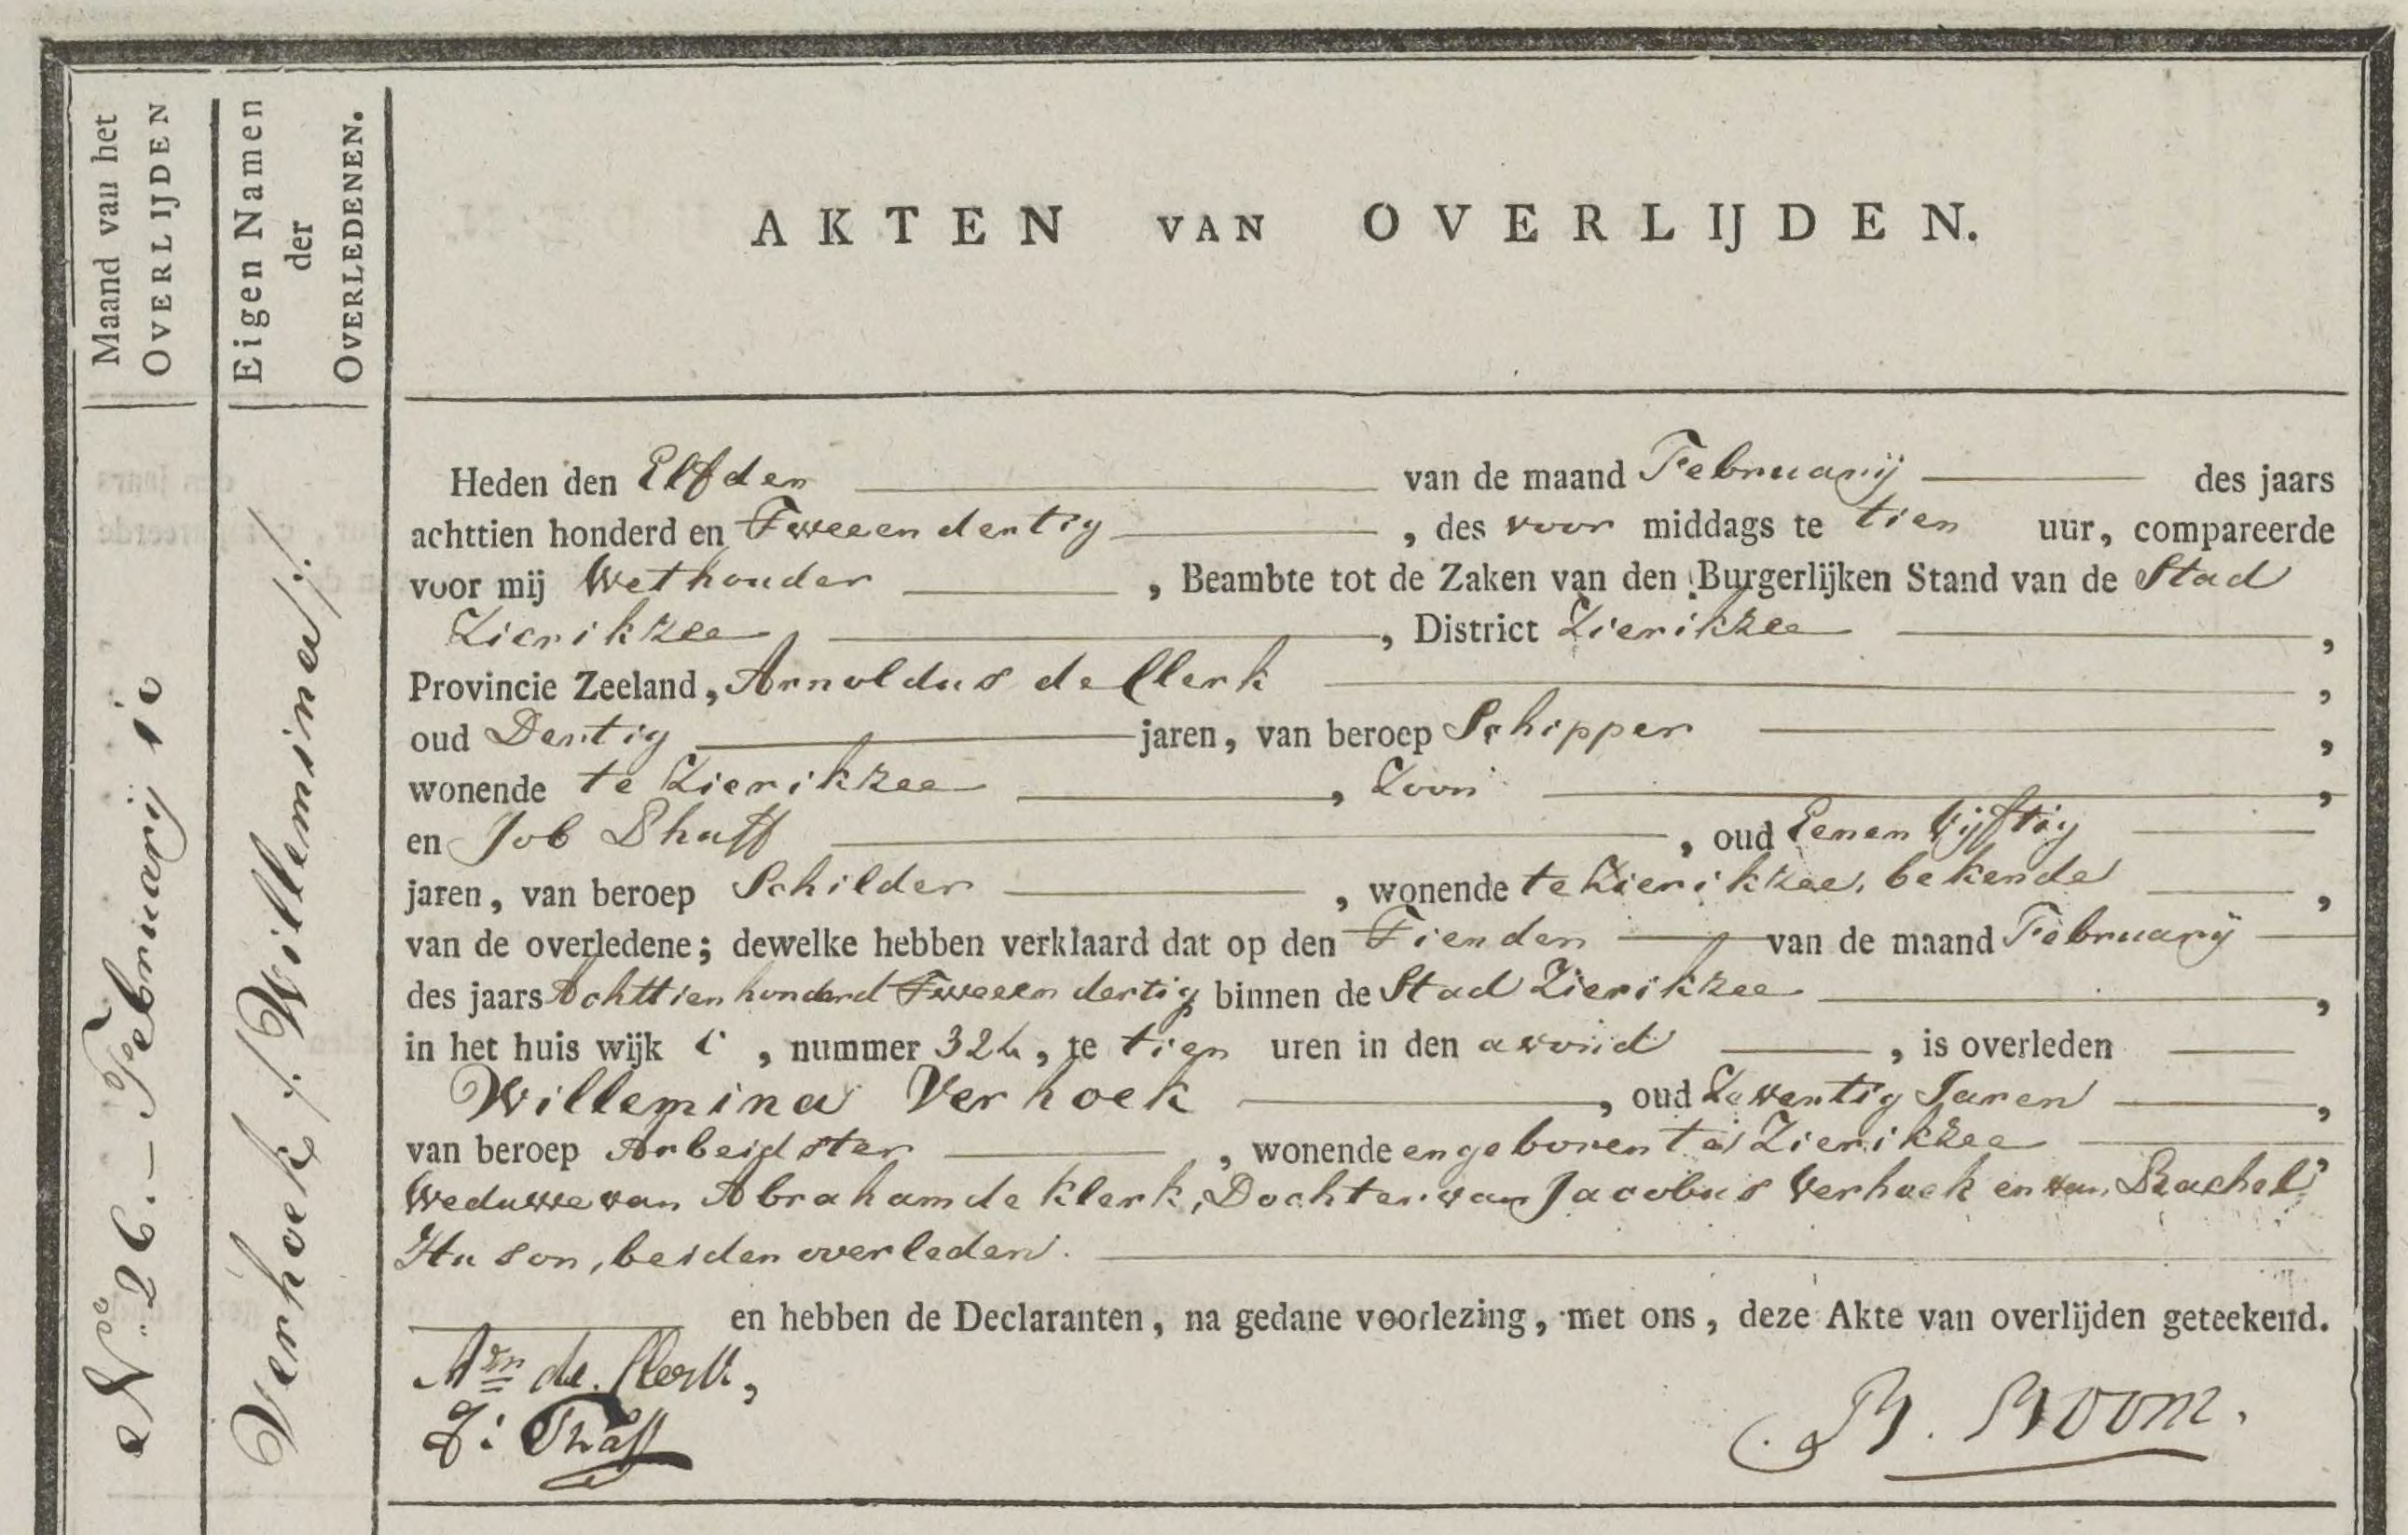 Maand van het
OVERLIJDEN
Eigen Namen
der
OVERLEDENEN.
AKTEN VAN OVERLIJDEN.
No. 26. – Februarij 10
Verhoek /: Willemina :/
Heden den Elfden van de maand Februarij des jaars
achttien honderd en Tweeen dertig , des voor middags te tien uur, compareerde
voor mij Wethouder , Beambte tot de Zaken van den Burgerlijken Stand van de Stad
Zierikzee , District Zierikzee ,
Provincie Zeeland, Arnoldus de Clerk ,
oud Dertig jaren, van beroep Schipper ,
wonende te Zierikzee , Zoon ,
en Job Shaff , oud Eenen Vijftig
jaren, van beroep Schilder , wonende te Zierikzee, bekende ,
van de overledene; dewelke hebben verklaard dat op den Tienden van de maand Februarij
des jaars Achttien honderd Tweeen dertig binnen de Stad Zierikzee ,
in het huis wijk C , nummer , te tien uren in den avond , is overleden
Willemina Verhoek , oud Jaren ,
van beroep Arbeidster , wonende en geboren te Zierikzee
Weduwe van Abraham de Klerk, Dochter van Jacobus Verhoek en van Rachel ,
Huson, beiden overleden.
en hebben de Declaranten, na gedane voorlezing, met ons, deze Akte van overlijden geteekend.
Arn de Clerk,
B. Boom.